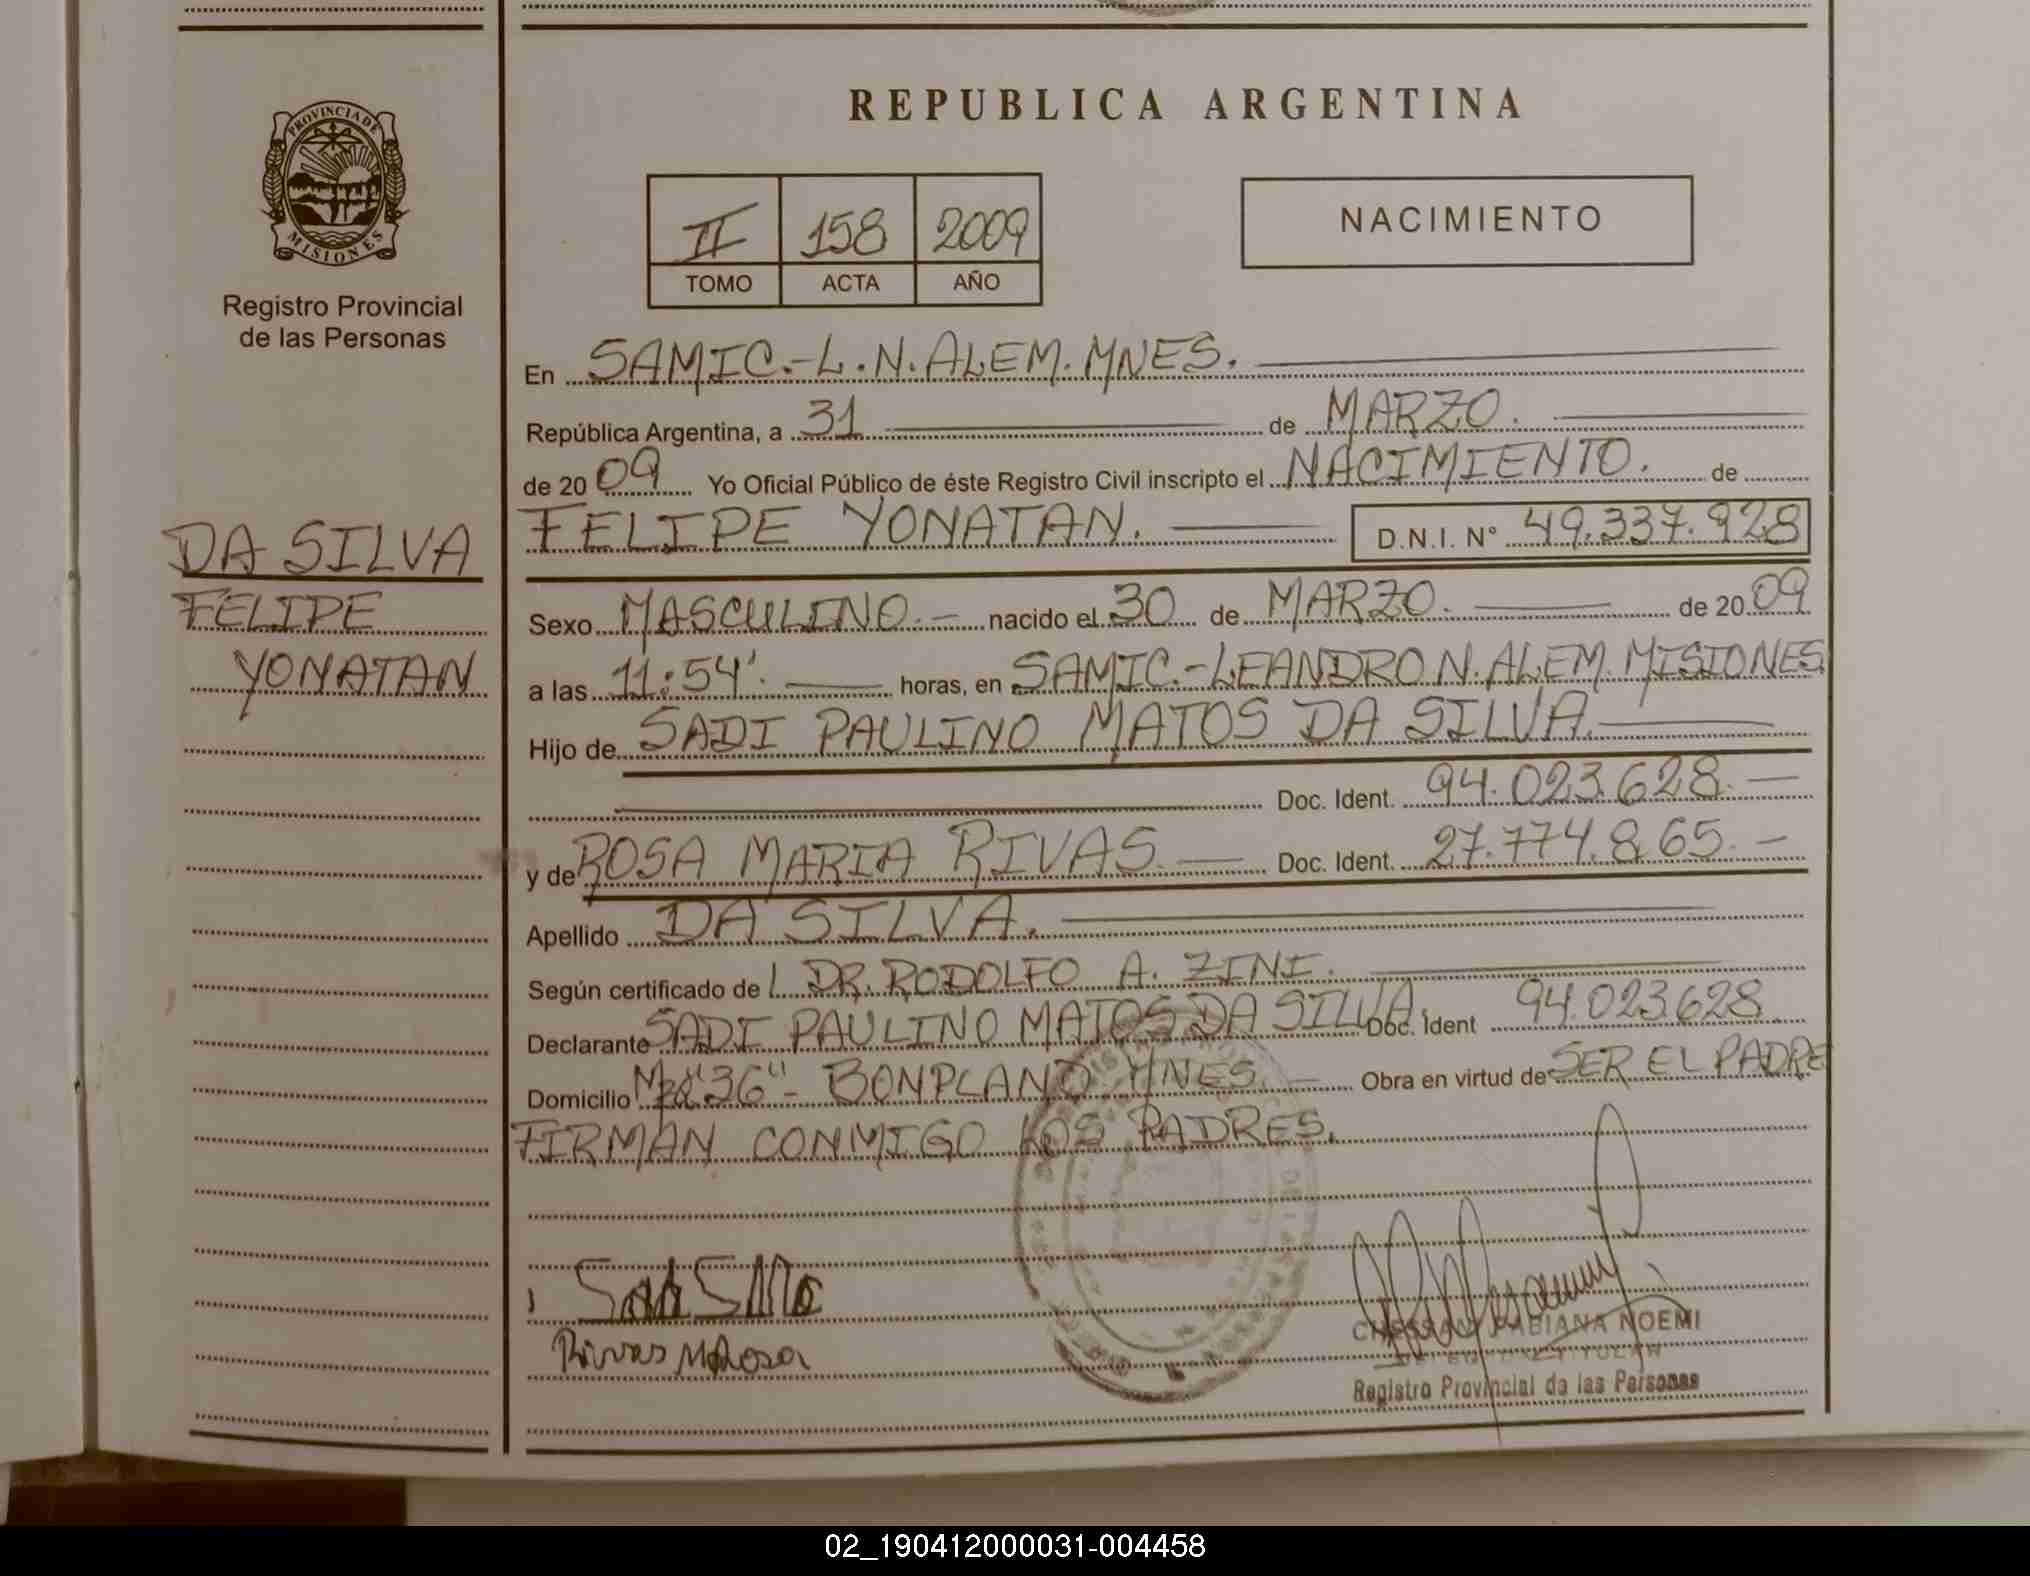 REPUBLICA ARGENTINA
PROVINCIA DE
MISIONES
Registro Provincial
de las Personas
II 158 2009
TOMO ACTA AÑO
NACIMIENTO
En SAMIC.-L.N.ALEM.MNES.
República Argentina, a 31 de MARZO.
de 2009 Yo Oficial Público de éste Registro Civil inscripto el NACIMIENTO. de
FELIPE YONATAN. D.N.I. N° 49.337.928
DA SILVA
FELIPE
YONATAN
Sexo MASCULINO.- nacido el 30 de MARZO. de 2009
a las 11:54'. horas, en SAMIC.-LEANDRO N. ALEM. MISIONES
Hijo de SADI PAULINO MATOS DA SILVA.
Doc. Ident. 94.023.628.-
y de ROSA MARIA RIVAS. Doc. Ident. 27.774.865.-
Apellido DA SILVA.
Según certificado de l DR. RODOLFO A. ZINI.
Declarante SADI PAULINO MATOS DA SILVA. Doc. Ident 94.023.628
Domicilio Mza"36"- BONPLAND MNES. Obra en virtud de SER EL PADRE
FIRMAN CONMIGO LOS PADRES.
Rivas M Rosa
FABIANA NOEMI
Registro Provincial de las Personas
02_190412000031-004458